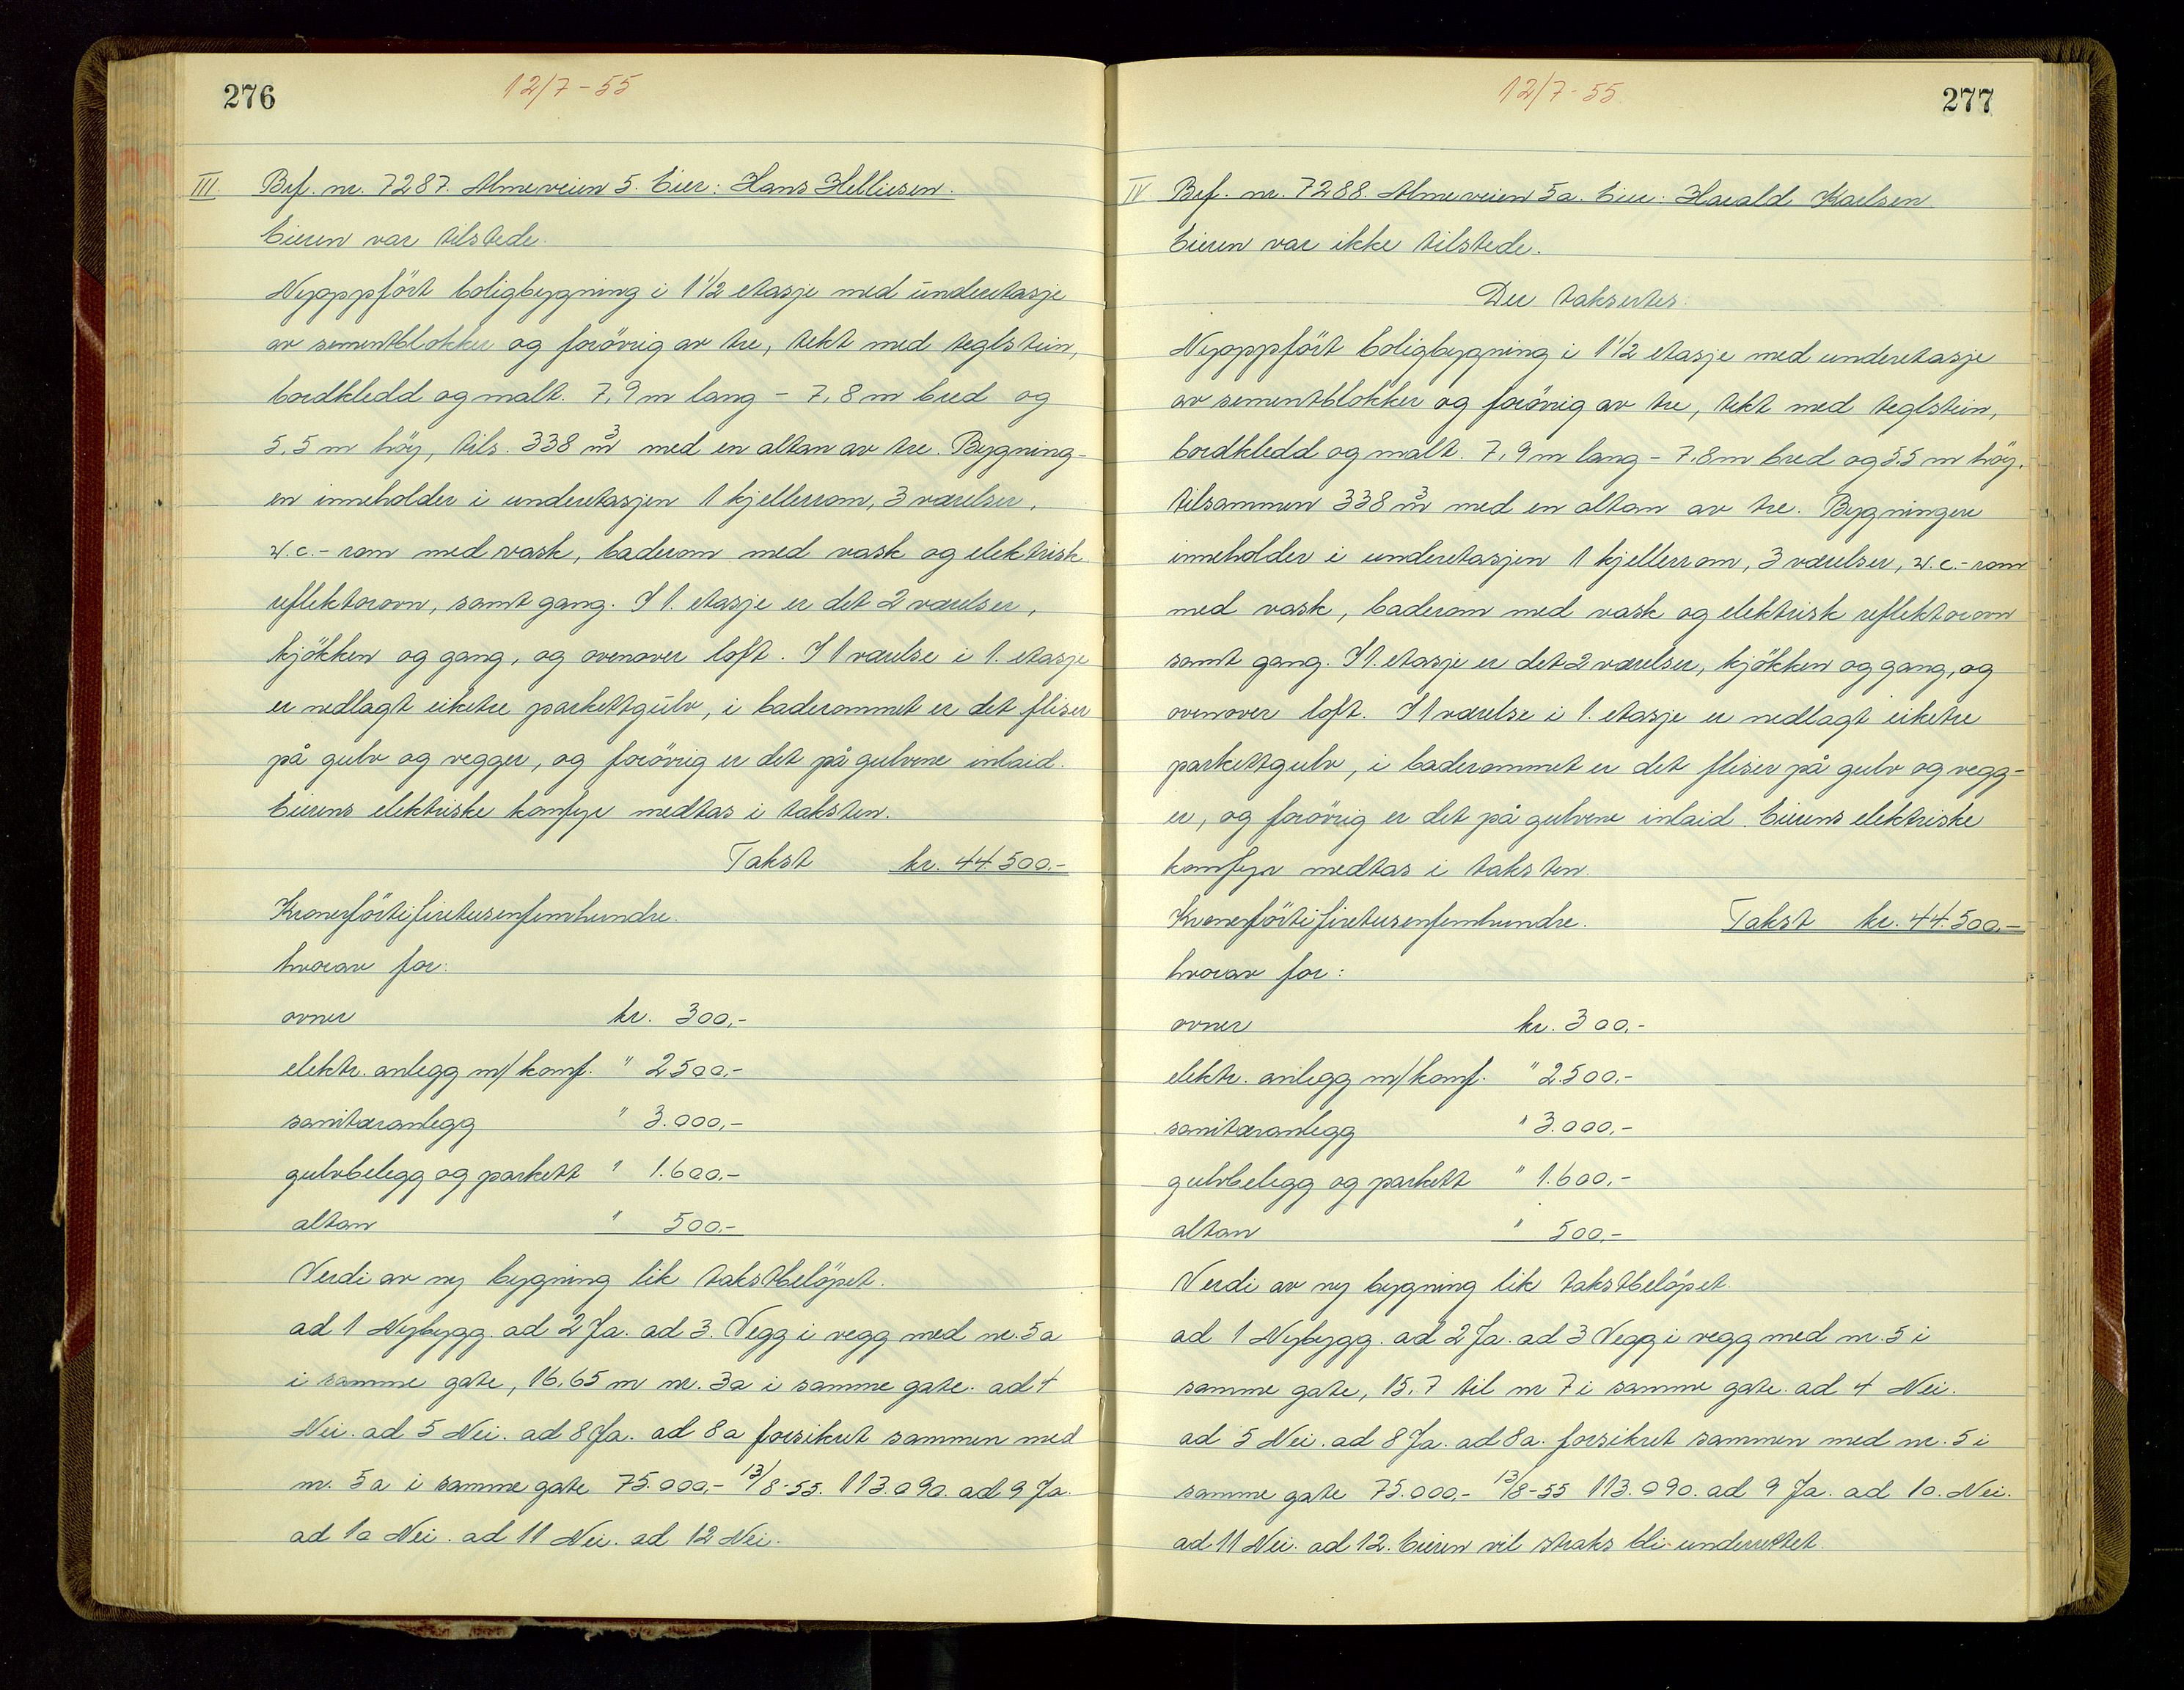 276
12/7-55
III Brf. nr. 7287. Almeveien 5. Eier: Hans Helliesen.
Eieren var tilstede.
Nyoppført boligbygning i 1½ etasje med underetasje
av sementblokker og forövrig av tre, tekt med teglstein,
bordkledd og malt. 7,9 m lang - 7,8 m bred og
5,5 m höy, tils. 338 m³ med en altan av tre. Bygning-
en inneholder i underetasjen 1 kjellerrom, 3 værelser,
w.c.-rom med vask, baderom med vask og elektrisk
reflektorovn, samt gang. I 1. etasje er det 2 værelser,
kjökken og gang, og ovenover loft. I 1 værelse i 1. etasje
er nedlagt eiketre parkettgulv, i baderommet er det fliser
på gulv og vegger, og forövrig er det på gulvene inlaid.
Eierens elektriske komfyr medtas i taksten.
Takst kr. 44.500.-
Kronerförtifiretusenfemhundre.
hvorav for:
ovner kr. 300,-
elektr. anlegg m/komf. " 2500,-
sanitæranlegg " 3.000,-
gulvbelegg og parkett " 1.600,-
altan " 500.-
Verdi av ny bygning lik takstbelöpet.
ad 1 Nybygg. ad 2 Ja. ad 3. Vegg i vegg med nr. 5a
i samme gate, 16,65 m nr. 3a i samme gate. ad 4
Nei. ad 5 Nei. ad 8 Ja. ad 8a forsikret sammen med
nr. 5a i samme gate 75.000,- 13/8-55. 113.090. ad 9 Ja.
ad 10 Nei. ad 11 Nei. ad 12 Nei.
12/7-55
277
IV Brf. nr. 7288. Almeveien 5a. Eier: Harald Karlsen
Eieren var ikke tilstede.
Der taksertes:
Nyoppfört boligbygning i 1½ etasje med underetasje
av sementblokker og forövrig av tre, tekt med teglstein,
bordkledd og malt. 7,9 m lang - 7,8 m bred og 5,5 m höy.
tilsammen 338 m³ med en altan av tre. Bygningen
inneholder i underetasjen 1 kjellerrom, 3 værelser, w.c.-rom
med vask, baderom med vask og elektrisk reflektorovn
samt gang. I 1. etasje er det 2 værelser, kjökken og gang, og
ovenover loft. I 1 værelse i 1. etasje er nedlagt eiketre
parkettgulv, i baderommet er det fliser på gulv og vegg-
er, og forövrig er det på gulvene inlaid. Eierens elektriske
komfyr medtas i taksten.
Kronerförtifiretusenfemhundre. Takst kr. 44.500,-
hvorav for:
ovner kr. 300,-
elektr. anlegg m/komf. " 2.500,-
sanitæranlegg " 3.000,-
gulvbelegg og parkett " 1.600,-
altan " 500,-
Verdi av ny bygning lik takstbelöpet.
ad 1 Nybygg. ad 2 Ja. ad 3 Vegg i vegg med nr. 5 i
samme gate, 15,7 til nr 7 i samme gate. ad 4 Nei.
ad 5 Nei. ad 8 Ja. ad 8a. forsikret sammen med nr. 5 i
samme gate 75.000,- 13/8-55 113.090. ad 9 Ja. ad 10. Nei.
ad 11 Nei. ad 12. Eieren vil straks bli underrettet.